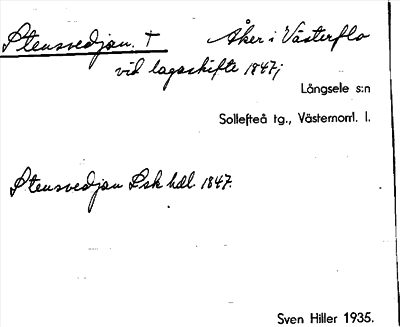 Stensvedjan. † Åker i Västerflo
vid lagaskifte 1847;
Långsele s:n
Sollefteå tg., Västernorrl. l.
Stensvedjan Lsk hdl. 1847.
Sven Hiller 1935.